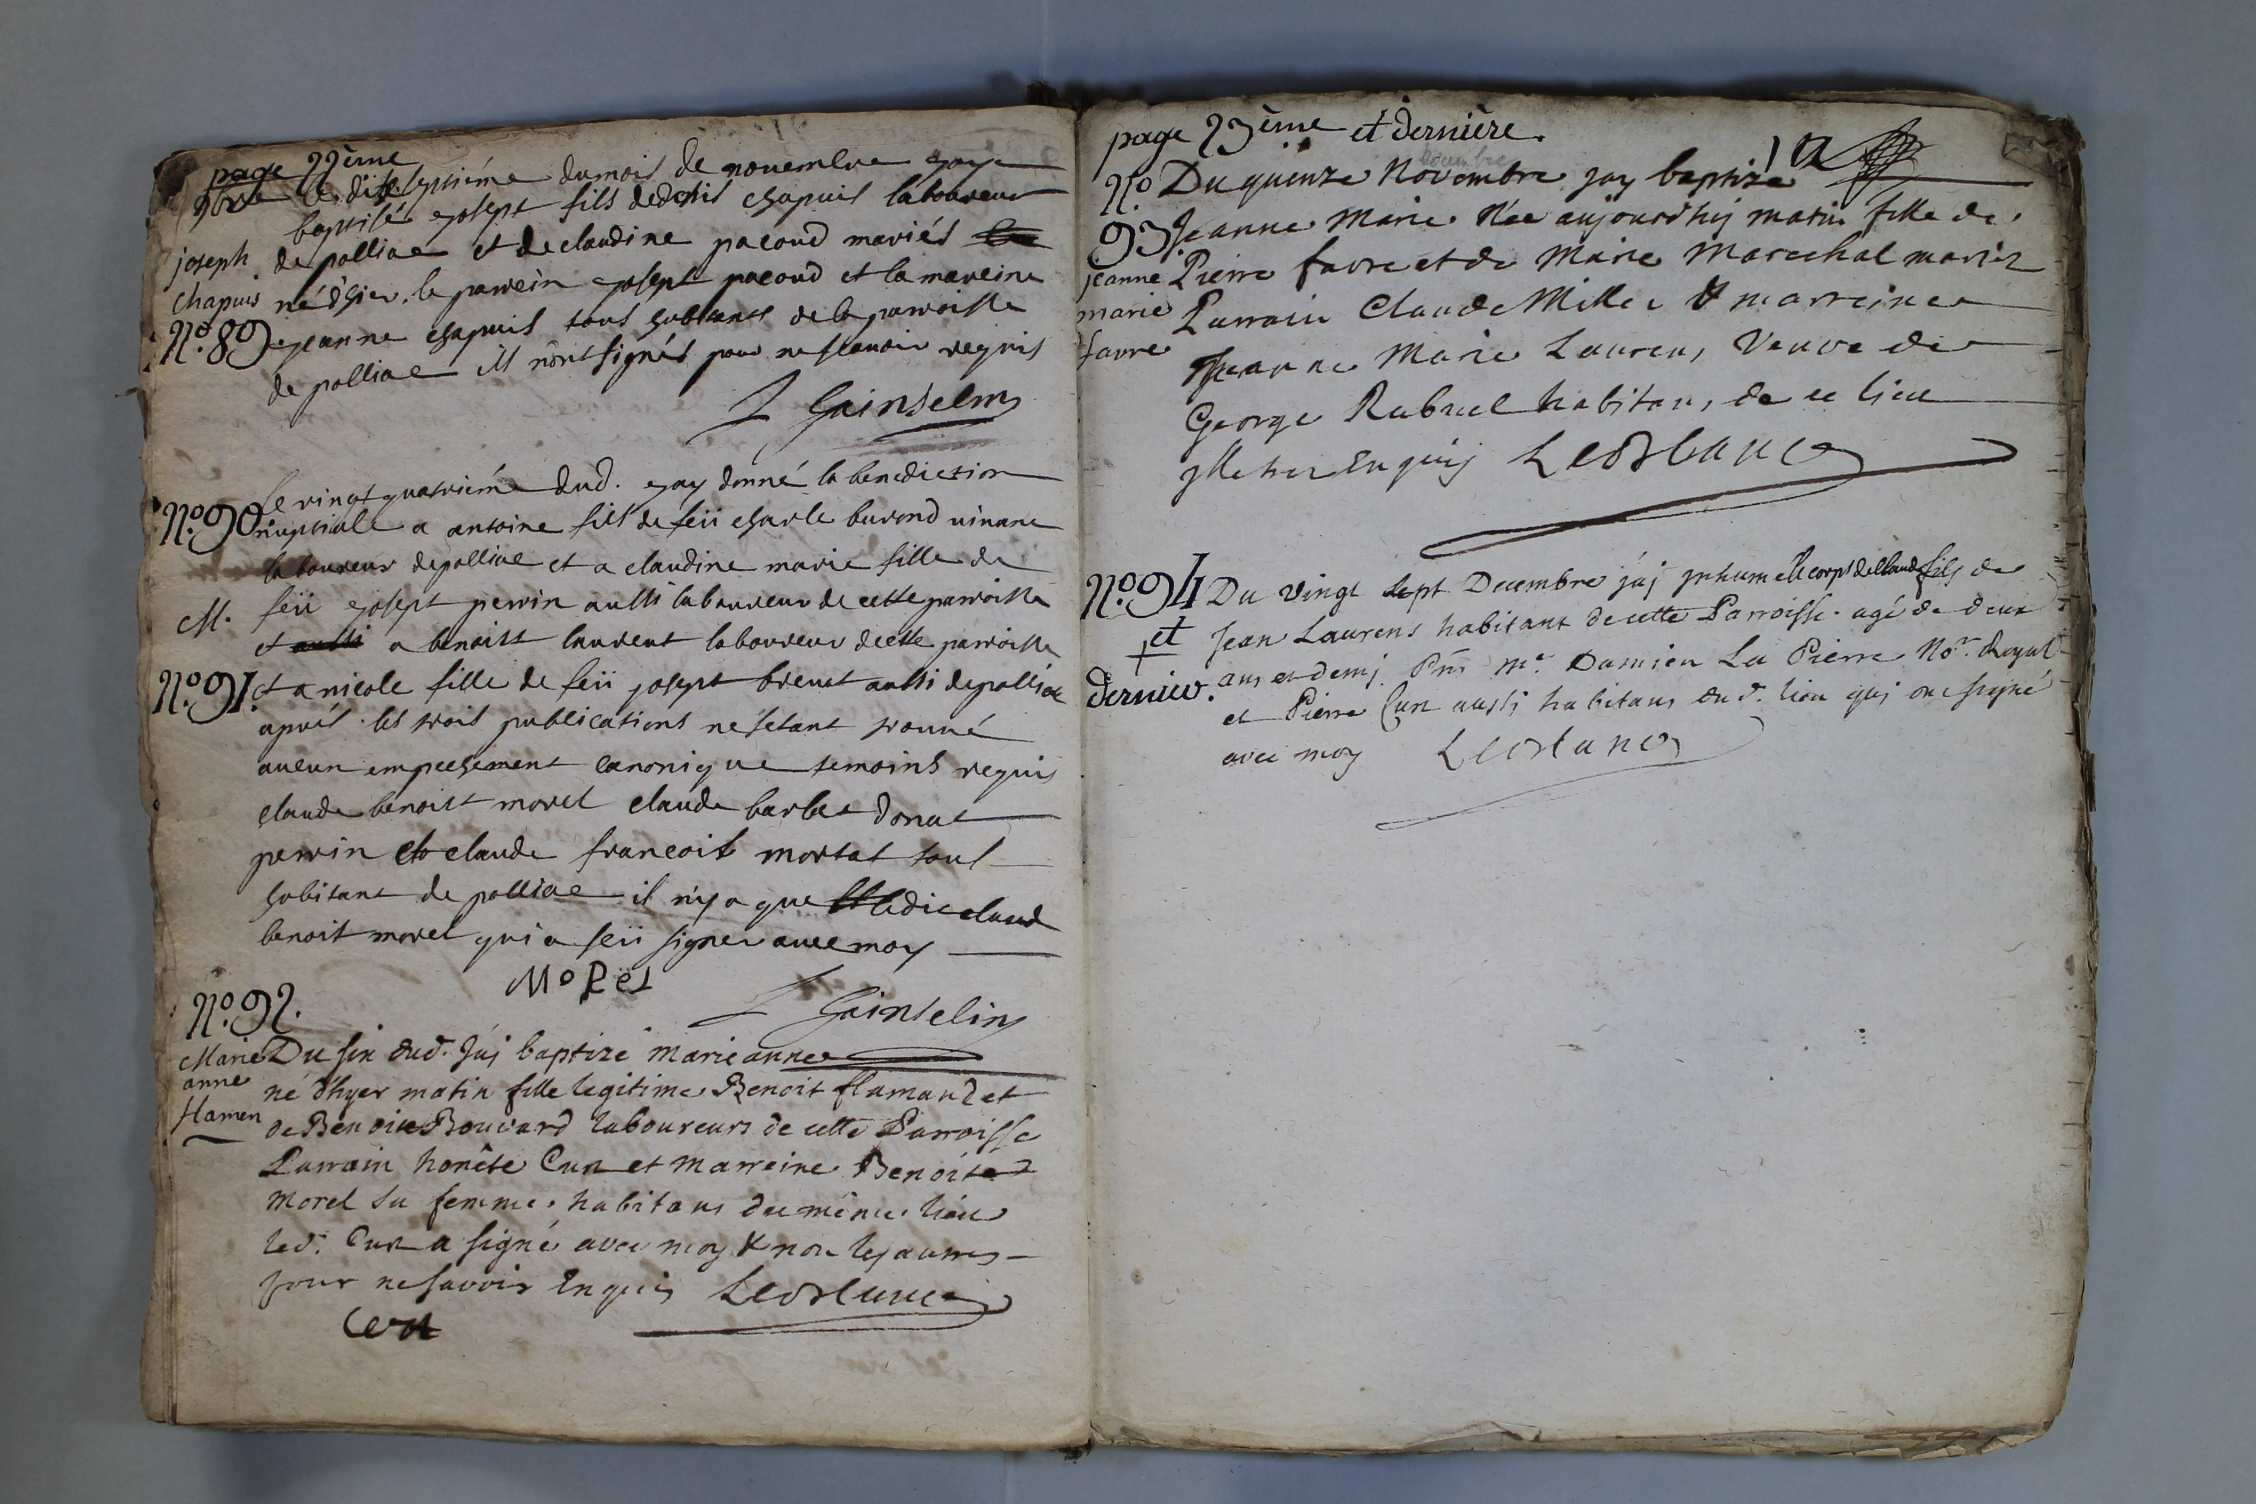 page 22ème
9bre le dixseptiéme du mois de novembre jay
baptisé josept fils de denis chapuis laboureur
joseph de polliac et de claudine pacoud mariés
chapuis né d'hier, le parrein josept pacoud et la mareine
N.o 89 jeanne chapuis tous habitants de la parroisse
de polliac ils n'ont signés pour ne scavoir requis
Gainselin
N.o 90. le vingtquatriéme dud. jay donné la benediction
nuptiale a antoine fils de feü charle burond vivant
laboureur de polliac et a claudine marie fille de
M. feü josept perrin aussi laboureur de cette parroisse
et aussi a benoist laurent laboureur de cette parroisse
N.o 91. et a nicole fille de feü josept brevet aussi de polliac
aprés les trois publications ne setant trouvé
aucun empechement canonique temoins requis
claude benoist morel claude barbet donat
perrin et claude francois mortat tous
habitant de polliac il n'y a que ledit claud
benoit morel qui a seü signer avec moy
MoRel
Gainselin
N.o 92.
Marie Du fin dud. j'aj baptizé marie anne
anne né d'hyer matin fille legitime Benoit flamand et
flamen de Benoite Bouvard laboureurs de cette Parroisse
Parrain honête Curt et marreine Benoite
morel sa femme habitans du même lieu
led. Curt a signé avec moy & non les autres
pour ne savoir Enquis Leorlance
Curt
page 23ème et dernière.
decembre
N.o Du quinze Novembre jay baptizé
93 Jeanne Marie Née aujourd'huj matin fille de
jeanne Pierre favre et de Marie Marechal mariéz
marie Parrain Claude Millet & marreine
favre Jeanne Marie Laurens Veuve de
George Rabuel habitans de ce lieu
illetrez Enquis Leorlance
N.o 94 Du vingt sept Decembre j'aj jnhumé le corps de Claude fils de
et Jean Laurens habitant de cette Parroisse agé de deux
dernier. ans et demj Pnts Me. Damien La Pierre Nore. Royal
et Pierre Curt aussj habitans dud. lieu quj ont signé
avec moy Leorlance